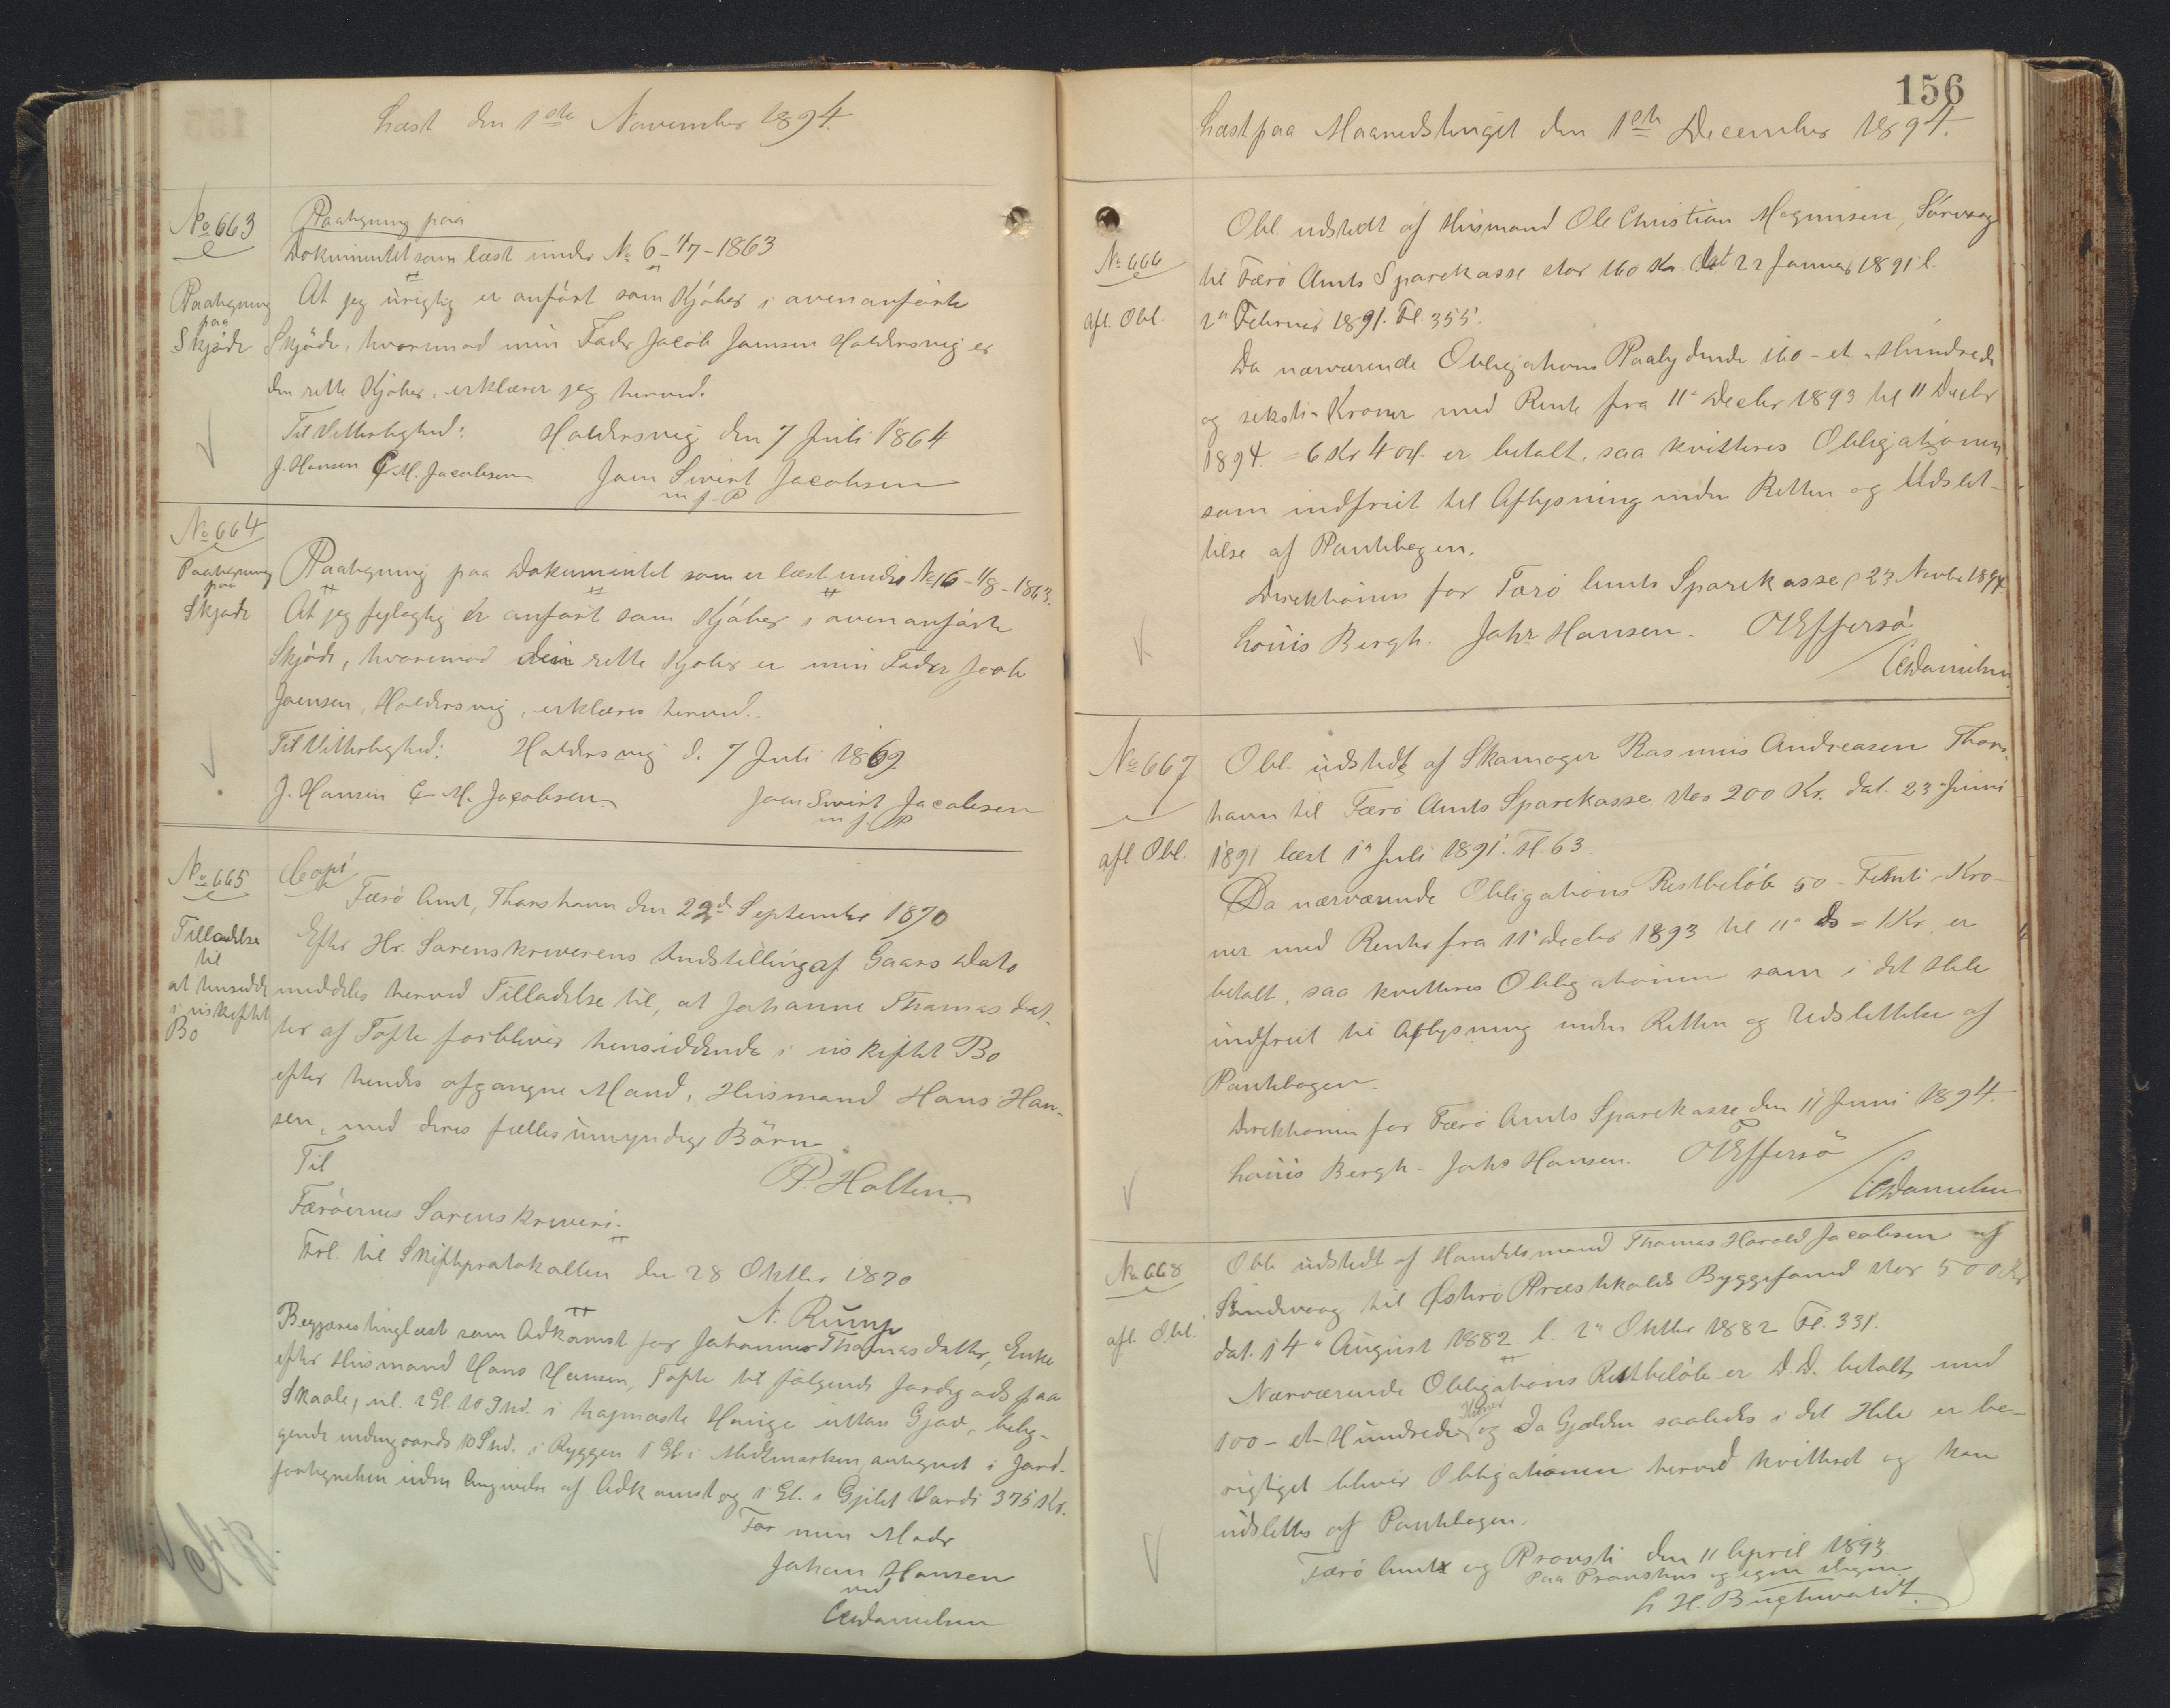 Læst den 1ste November 1894.
No 663
Paategning paa
Skjøde
Paategning paa
Dokumentet som læst under No 6 - 1/7 - 1863
At jeg urigtig er anført som Kjøber i ovenanførte
Skjøde, hvorimod min Fader Jacob Joensen Haldersvig er
den rette Kjøber, erklærer jeg herved.
Til Vitterlighed: Haldersvig den 7 Juli 1864
J. Hansen C. M. Jacobsen Joen Sivert Jacobsen
m. f. P
No 664
Paategning paa
Skjøde
Paategning paa Dokumentet som er læst under No 16 - 1/8 - 1863.
At jeg fejlagtig er anført som Kjøber i ovenanførte
Skjøde, hvorimod den rette Kjøber er min Fader Jacob
Joensen, Haldersvig, erklæres herved.
Til Vitterlighed: Haldersvig d. 7 Juli 1869
J. Hansen C. M. Jacobsen Joen Sivert Jacobsen
m. f. P
No 665
Tilladelse
til
at hensidde
i uskiftet
Bo
Copi
Færø Amt, Thorshavn den 22d September 1870
Efter Hr. Sorenskriverens Indstilling af Gaars Dato
meddeles herved Tilladelse til, at Johanne Thomasdat-
ter af Tofte forbliver hensiddende i uskiftet Bo
efter hendes afgangne Mand, Husmand Hans Han-
sen, med deres fælles umyndige Børn
P. Holten.
Til
Færøernes Sorenskriveri.
Frl. til Skifteprotokollen den 28 Oktbr 1870
N. Rump
Begjæres tinglæst som Adkomst for Johanne Thomasdatter, Enke
efter Husmand Hans Hansen, Tofte til følgende Jordegods paa
Skaale, nl. 2 Gl. 10 Skd. i høgmaste Hauge uttan Gjov, belig-
gende indengaards 10 Skd. i Ryggen 1 Gl. i Midtmarken, antegnet i Jord-
fortegnelsen uden Angivelse af Adkomst og 1 Gl. i Gjilet Værdi 375 Kr.
For min Moder
Johan Hansen
ved
CEDanielsen
156
Læst paa Maanedstinget den 1ste December 1894.
No 666
afl. Obl.
Obl. udstedt af Husmand Ole Christian Magnusen, Sørvaag
til Færø Amts Sparekasse stor 160 Kr. dat 22 Januar 1891 l.
2n Februar 1891. Fl. 355.
Da nærværende Obligations Paalydende 160 - et Hundrede
og seksti - Kroner med Rente fra 11 Decbr 1893 til 11 Decbr
1894 = 6 Kr 40 Ø. er betalt, saa kvitteres Obligationen
som indfriet til Aflysning inden Retten og Udslet-
telse af Pantebogen.
Direktionen for Færø Amts Sparekasse, 23 Novbr 1894.
Louis Bergh. Johs Hansen. OEffersø
/ CEDanielsen
No 667
afl Obl.
Obl. udstedt af Skomager Rasmus Andreasen Thors-
havn til Færø Amts Sparekasse stor 200 Kr. dat. 23 Juni
1891 læst 1n Juli 1891. Fl. 63.
Da nærværende Obligations Restbeløb 50 - Femti - Kro-
ner med Renter fra 11 Decbr 1893 til 11 Ds = 1 Kr. er
betalt, saa kvitteres Obligationen som i det Hele
indfriet til Aflysning inden Retten og Udslettelse af
Pantebogen.
Direktionen for Færø Amts Sparekasse den 11 Juni 1894.
Louis Bergh - Johs Hansen. OEffersø
/ CEDanielsen
No 668
afl. Obl.
Obl. udstedt af Handelsmand Thomas Harald Jacobsen af
Strendevaag til Østerø Præstekalds Byggefond stor 500 Kr
dat. 14n August 1882 l. 2n Oktbr 1882 Fl. 331.
Nærværende Obligations Restbeløb er D.D. betalt, med
100 - et Hundrede Kroner og da Gjælden saaledes i det Hele er be-
rigtiget bliver Obligationen herved kvitteret og kan
udslettes af Pantebogen.
Færø Amt og Provsti den 11 April 1893
paa Provstens og egne Vegne
L. H. Buchwaldt.